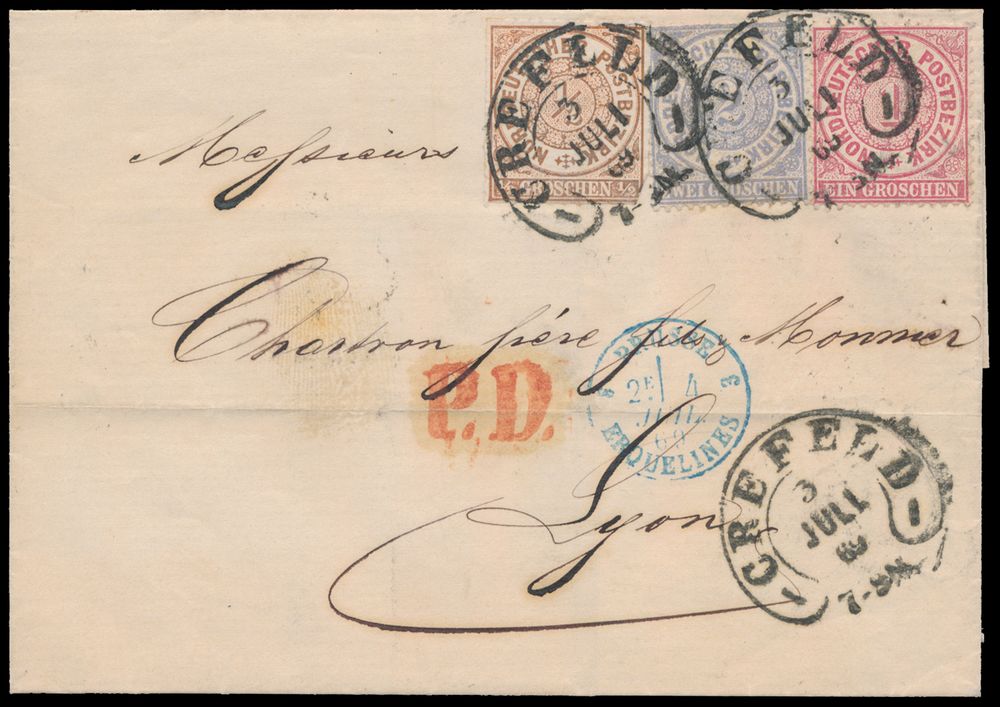 NORDDEUTSCHER POSTBEZIRK
1/2
GROSCHEN 1/2
NORDDEUTSCHER POSTBEZIRK
ZWEI GROSCHEN
NORDDEUTSCHER POSTBEZIRK
1
EIN GROSCHEN
CREFELD
3
JULI
69
7-8N.
CREFELD
3
JULI
69
Messieurs
Chartron père fils, Monnier
P.D.
PRUSSE
3 3
2E 4
JUIL.
69
ERQUELINES
Lyon
CREFELD
3
JULI
69
7-8N.